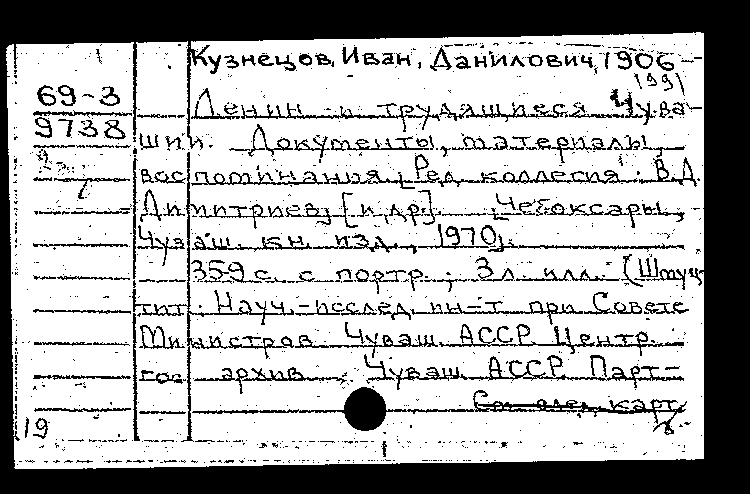 Кузнецов, Иван Данилович, 1906-
1991
69-3
9738
Ленин и трудящиеся Чува-
шии. Документы, материалы,
воспоминания. [Ред. коллегия: В.Д.
Димитриев, [и др]. Чебоксары,
Чуваш. кн. изд., 1970].
359 с. с портр.; 3 л. илл. (Шмуц-
тит: Науч.-исслед. ин-т при Совете
Министров Чуваш. АССР. Центр.
гос архив Чуваш. АССР. Парт-
См. след. карт.
19